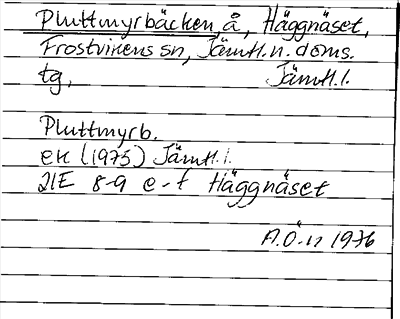 Pluttmyrbäcken, å, Häggnäset,
Frostvikens sn, Jämtl. n. doms.
tg, Jämtl. l.
Pluttmyrb.
EK (1975) Jämtl. l.
21E 8-9 e-f Häggnäset
A.Ö-n 1976